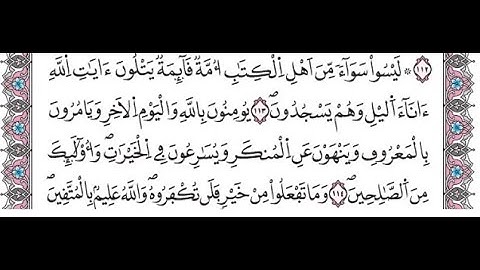 ١١٢ ۞ لَيْسُواْ سَوَآءٗ مِّنَ اَهْلِ اِ۬لْكِتَٰبِ أُمَّةٞ قَآئِمَةٞ يَتْلُونَ ءَايَٰتِ اِ۬للَّهِ
ءَانَآءَ اَ۬ليْلِ وَهُمْ يَسْجُدُونَۖ ١١٣ يُومِنُونَ بِاللَّهِ وَالْيَوْمِ اِ۬لَاخِرِ وَيَامُرُونَ
بِالْمَعْرُوفِ وَيَنْهَوْنَ عَنِ اِ۬لْمُنكَرِ وَيُسَٰرِعُونَ فِے اِ۬لْخَيْرَٰتِۖ وَأُوْلَٰٓئِكَ
مِنَ اَ۬لصَّٰلِحِينَۖ ١١٤ وَمَا تَفْعَلُواْ مِنْ خَيْرٖ فَلَن تُكْفَرُوهُۖ وَاللَّهُ عَلِيمُۢ بِالْمُتَّقِينَۖ